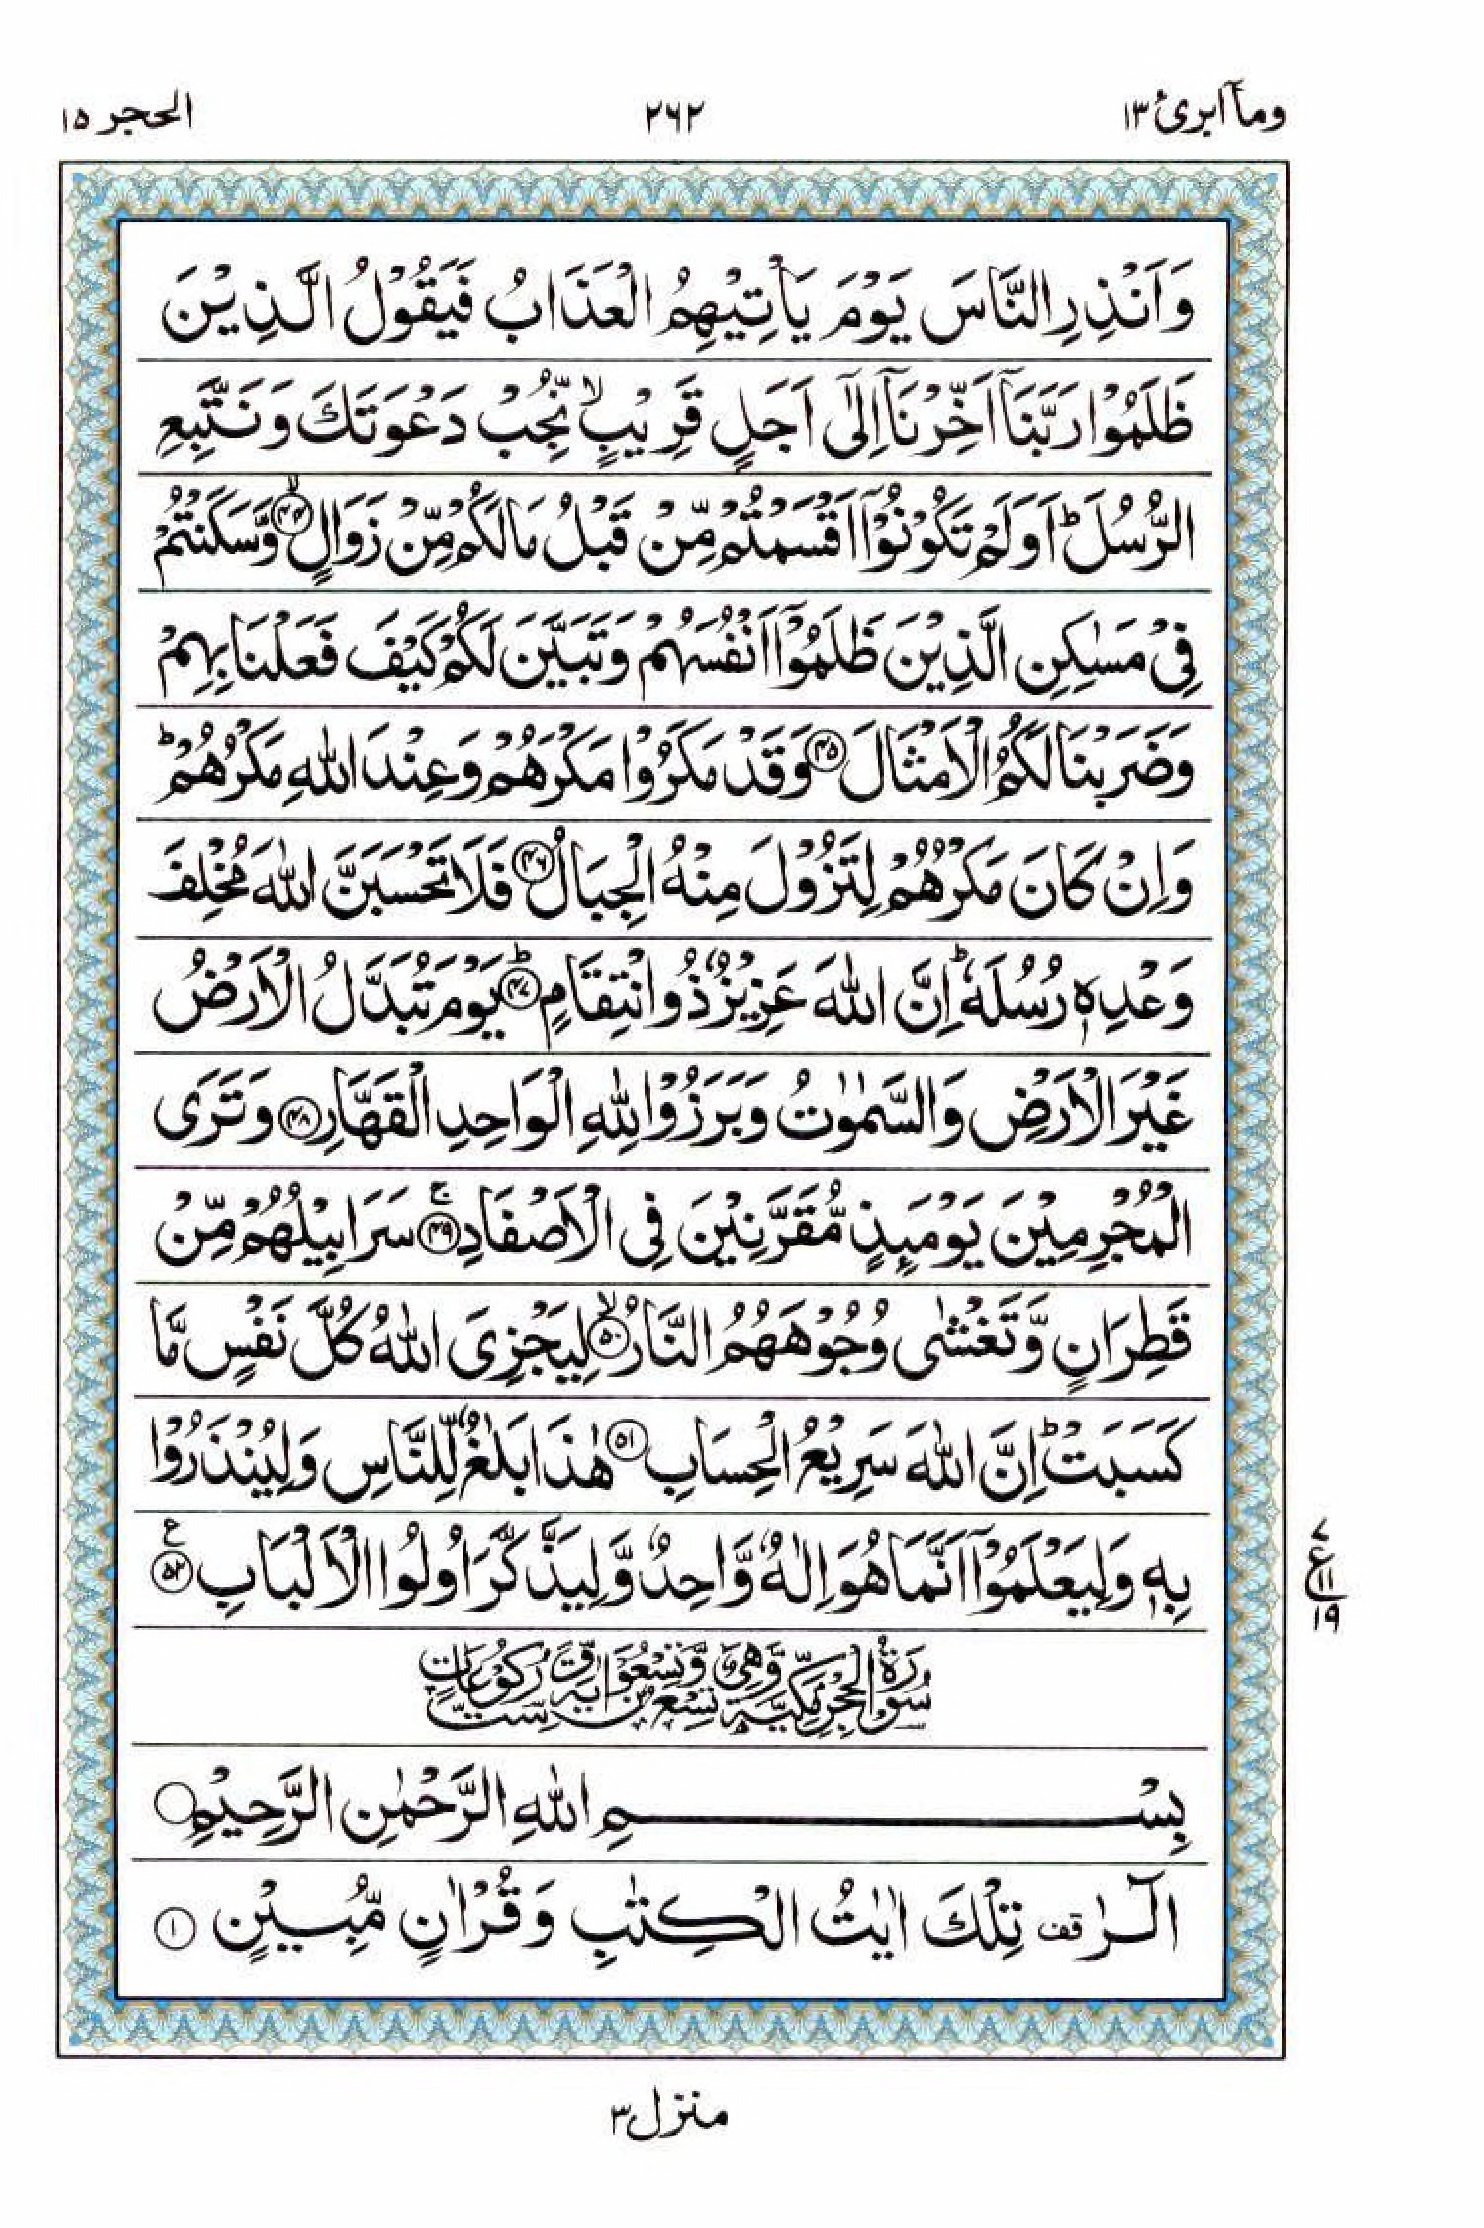 وماۤ ابرئ ١٣
٢٦٢
الحجر ١٥
وَاَنْذِرِ النَّاسَ يَوْمَ يَاْتِيْهِمُ الْعَذَابُ فَيَقُوْلُ الَّذِيْنَ
ظَلَمُوْا رَبَّنَاۤ اَخِّرْنَاۤ اِلٰۤى اَجَلٍ قَرِيْبٍ ۙ نُّجِبْ دَعْوَتَكَ وَنَتَّبِعِ
الرُّسُلَ ؕ اَوَلَمْ تَكُوْنُوْۤا اَقْسَمْتُمْ مِّنْ قَبْلُ مَا لَكُمْ مِّنْ زَوَالٍ ۙ‏﴿۴۴﴾ وَّسَكَنْتُمْ
فِىْ مَسٰكِنِ الَّذِيْنَ ظَلَمُوْۤا اَنْفُسَهُمْ وَتَبَيَّنَ لَكُمْ كَيْفَ فَعَلْنَا بِهِمْ
وَضَرَبْنَا لَكُمُ الْاَمْثَالَ ﴿۴۵﴾ وَقَدْ مَكَرُوْا مَكْرَهُمْ وَعِنْدَ اللّٰهِ مَكْرُهُمْ ؕ
وَاِنْ كَانَ مَكْرُهُمْ لِتَزُوْلَ مِنْهُ الْجِبَالُ ﴿۴۶﴾ فَلَا تَحْسَبَنَّ اللّٰهَ مُخْلِفَ
وَعْدِهٖ رُسُلَهٗ ؕ اِنَّ اللّٰهَ عَزِيْزٌ ذُو انْتِقَامٍ ؕ﴿۴۷﴾ يَوْمَ تُبَدَّلُ الْاَرْضُ
غَيْرَ الْاَرْضِ وَالسَّمٰوٰتُ وَبَرَزُوْا لِلّٰهِ الْوَاحِدِ الْقَهَّارِ ﴿۴۸﴾ وَتَرَى
الْمُجْرِمِيْنَ يَوْمَئِذٍ مُّقَرَّنِيْنَ فِى الْاَصْفَادِ ۚ﴿۴۹﴾ سَرَابِيْلُهُمْ مِّنْ
قَطِرَانٍ وَّتَغْشٰى وُجُوْهَهُمُ النَّارُ ۙ﴿۵۰﴾ لِيَجْزِىَ اللّٰهُ كُلَّ نَفْسٍ مَّا
كَسَبَتْ ؕ اِنَّ اللّٰهَ سَرِيْعُ الْحِسَابِ ﴿۵۱﴾ هٰذَا بَلٰغٌ لِّلنَّاسِ وَلِيُنْذَرُوْا
بِهٖ وَلِيَعْلَمُوْۤا اَنَّمَا هُوَ اِلٰهٌ وَّاحِدٌ وَّلِيَذَّكَّرَ اُولُوا الْاَلْبَابِ ﴿۵۲﴾ ع
٧ ع ١١ ١٩
سُوْرَةُ الْحِجْرِ مَكِّيَّةٌ وَّهِىَ تِسْعٌ وَّتِسْعُوْنَ اٰيَةً وَّسِتُّ رُكُوْعَاتٍ
بِسْمِ اللّٰهِ الرَّحْمٰنِ الرَّحِيْمِ
الٓرٰ ࣞقف تِلْكَ اٰيٰتُ الْكِتٰبِ وَقُرْاٰنٍ مُّبِيْنٍ ﴿۱﴾
منزل ٣